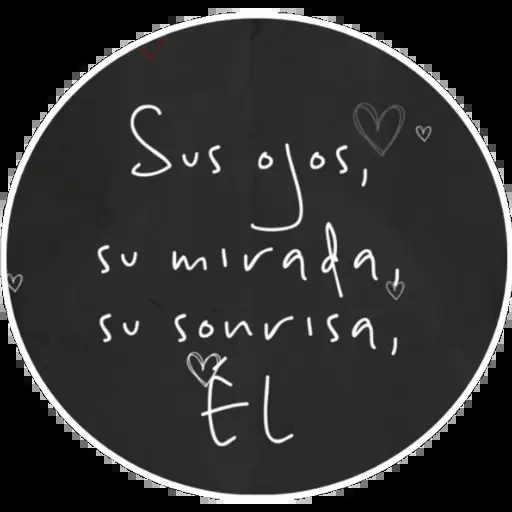 Sus ojos,
su mirada,
su sonrisa,
Él